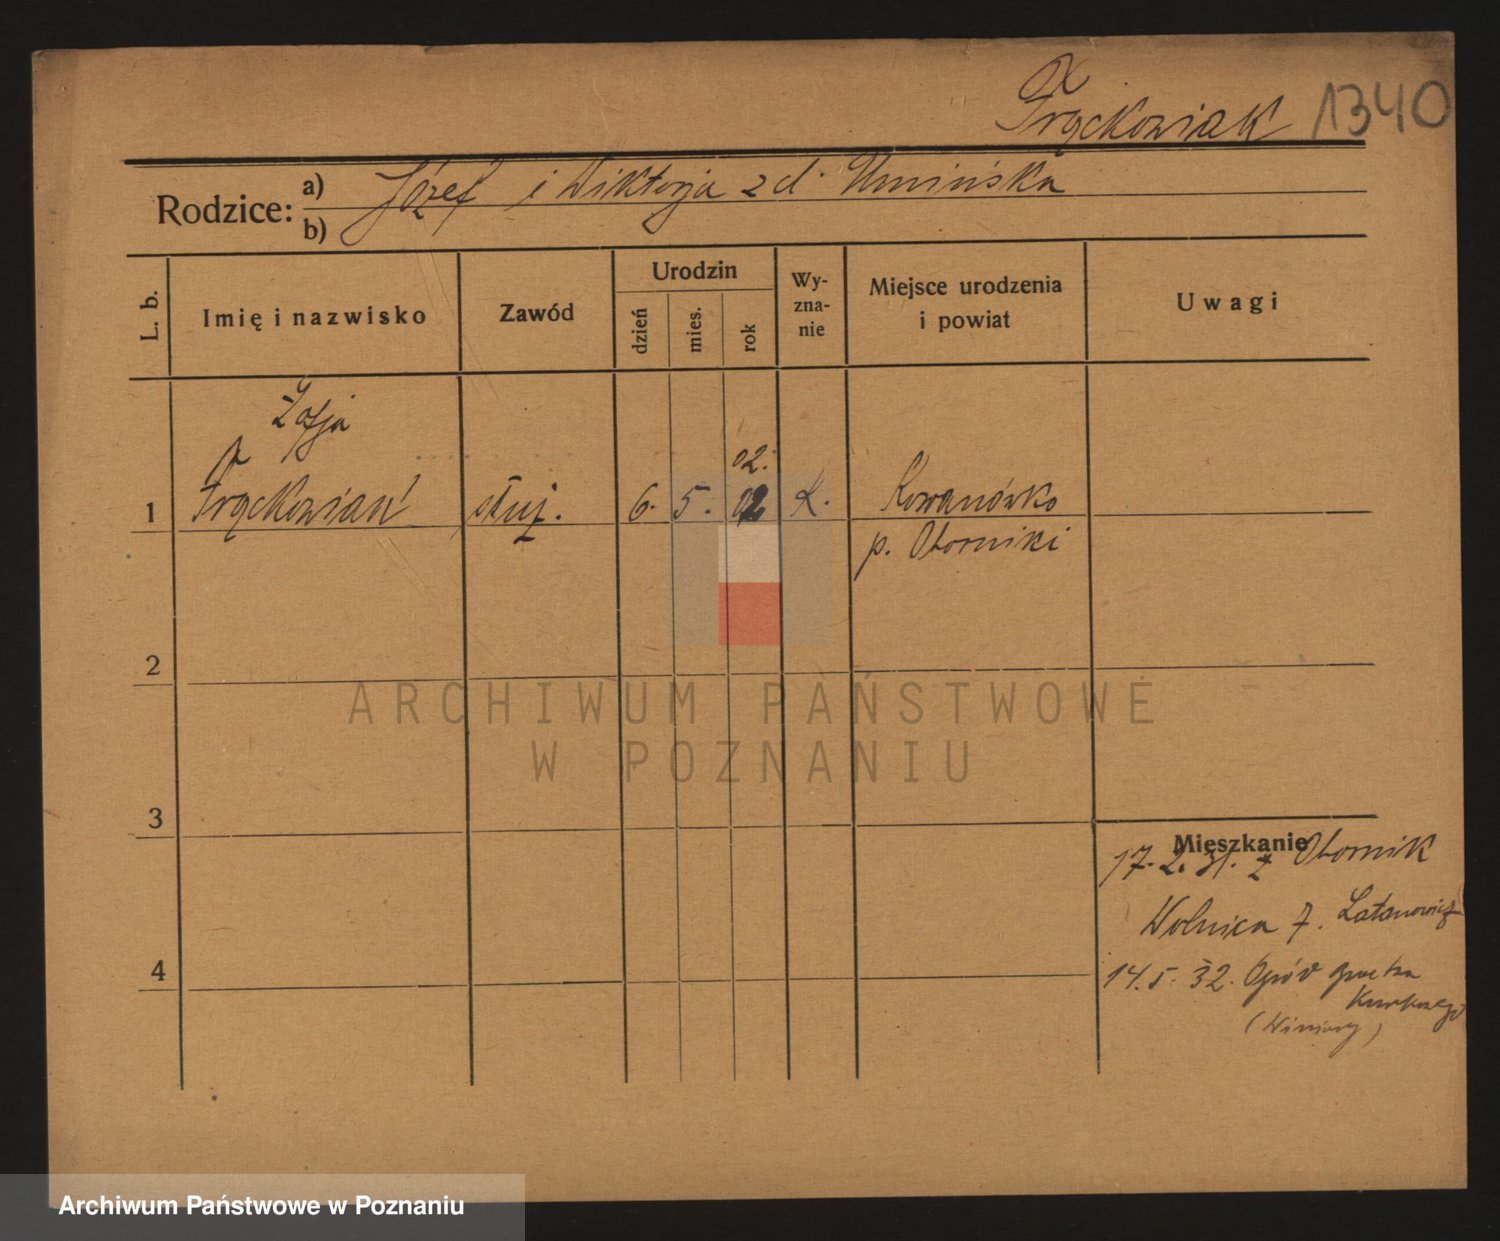 Frąckowiak 1340
Rodzice: a) Józef i Wiktorja z d. Umińska
b)
L. b. Imię i nazwisko Zawód Urodzin dzień mies. rok Wyznanie Miejsce urodzenia i powiat Uwagi
Zofja
02.
1 Frąckowiak służ. 6. 5. 02 k. Kowanówko
p. Oborniki
2
ARCHIWUM PAŃSTWOWE
W POZNANIU
3
Mieszkanie
17. 2. 31. z Obornik
Wolnica 7. Latanowicz
14. 5. 32. Ogród
(Winiary)
4
Archiwum Państwowe w Poznaniu